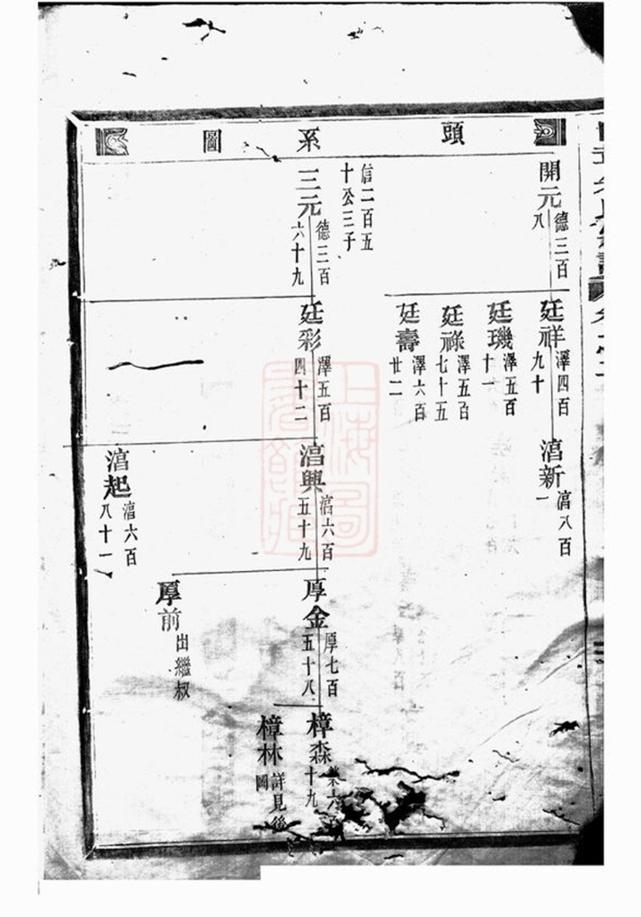 頭系圖
開元 德三百八
廷祥 澤四百九十
廷璣 澤五百十一
廷祿 澤五百七十五
廷壽 澤六百廿二
湻新 湻八百一
信二百五十公三子
三元 德三百六十九
廷彩 澤五百四十二
湻興 湻六百五十九
湻起 湻六百八十一
厚金 厚七百五十八
厚前 出繼叔
樟森 十九
樟林 詳見後圖
上海圖書館藏